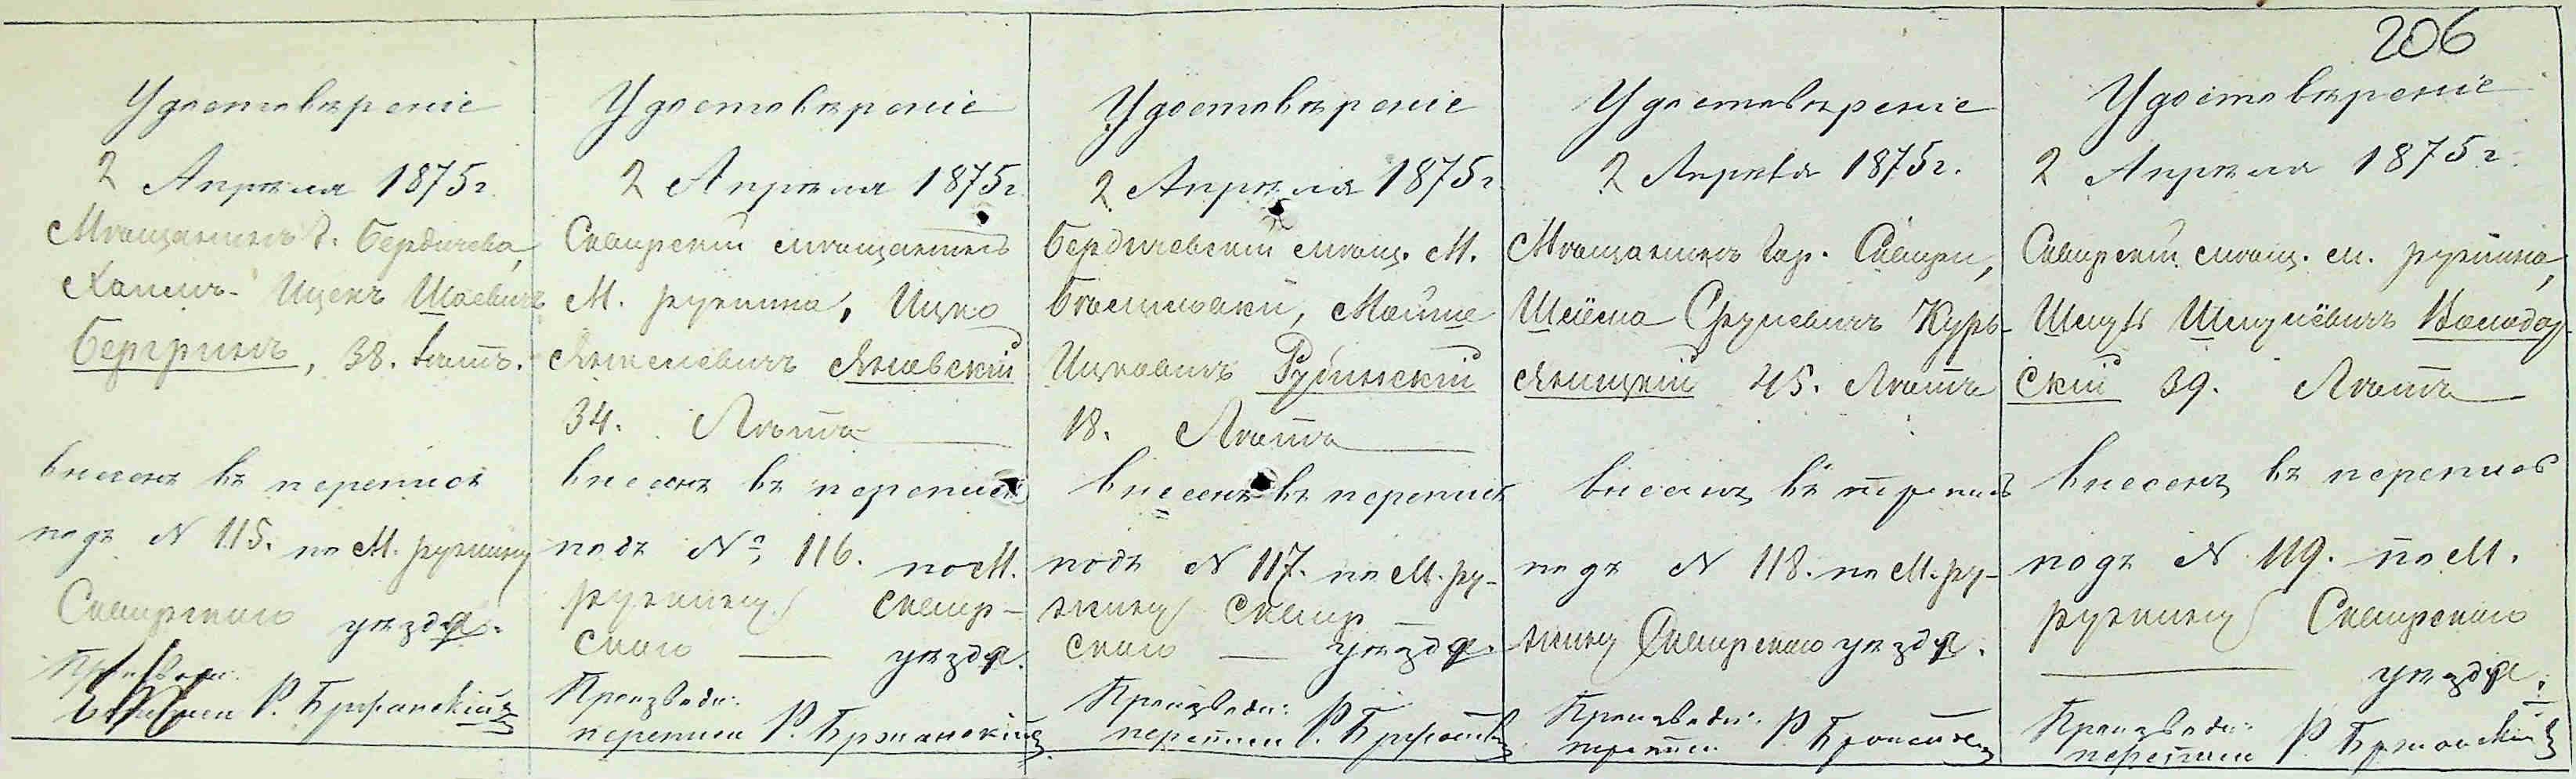 206
Удостовѣреніе
2 Апрѣля 1875 г.
Мѣщанинъ г. Бердичева,
Хаимъ-Ицекъ Шаевичъ
Бергринъ, 38. лѣтъ.
внесенъ въ перепись
подъ N 115. по М. Ружину
Сквирскаго уѣзда.
Производ:
переписи Р. Бржанскій
Удостовѣреніе
2 Апрѣля 1875 г
Сквирскій мѣщанинъ
М. Ружина, Ицко
Янкелевичъ Яновскій
34. Лѣтъ
внесенъ въ перепись
подъ № 116. по М.
Ружину Сквир-
скаго уѣзда.
Производи:
переписи Р. Бржанскій
Удостовѣреніе
2 Апрѣля 1875 г.
Бердичевскій мѣщ. М.
Мойше
Ицковичъ Рубинскій
18. Лѣтъ
внесенъ въ перепись
подъ N 117. по М. Ру-
жину Сквир
скаго уѣзда.
Производи:
переписи Р.
Удостовѣреніе
2 Апрѣля 1875 г.
Мѣщанинъ гор. Сквиры,
Шлёма Срулевичъ Курь-
яницкій 45. Лѣтъ
внесенъ въ перепись
подъ N 118. по М. Ру-
жину Сквирскаго уѣзда.
Производи:
переписи Р.
Удостовѣреніе
2 Апрѣля 1875 г.
Сквирскій мѣщ. м. Ружина,
Шмулёвичъ Володар-
скій 39. Лѣтъ
внесенъ въ перепись
подъ N 119. по М.
Ружину Сквирскаго
уѣзда.
Производи:
переписи Р. Бржанскій